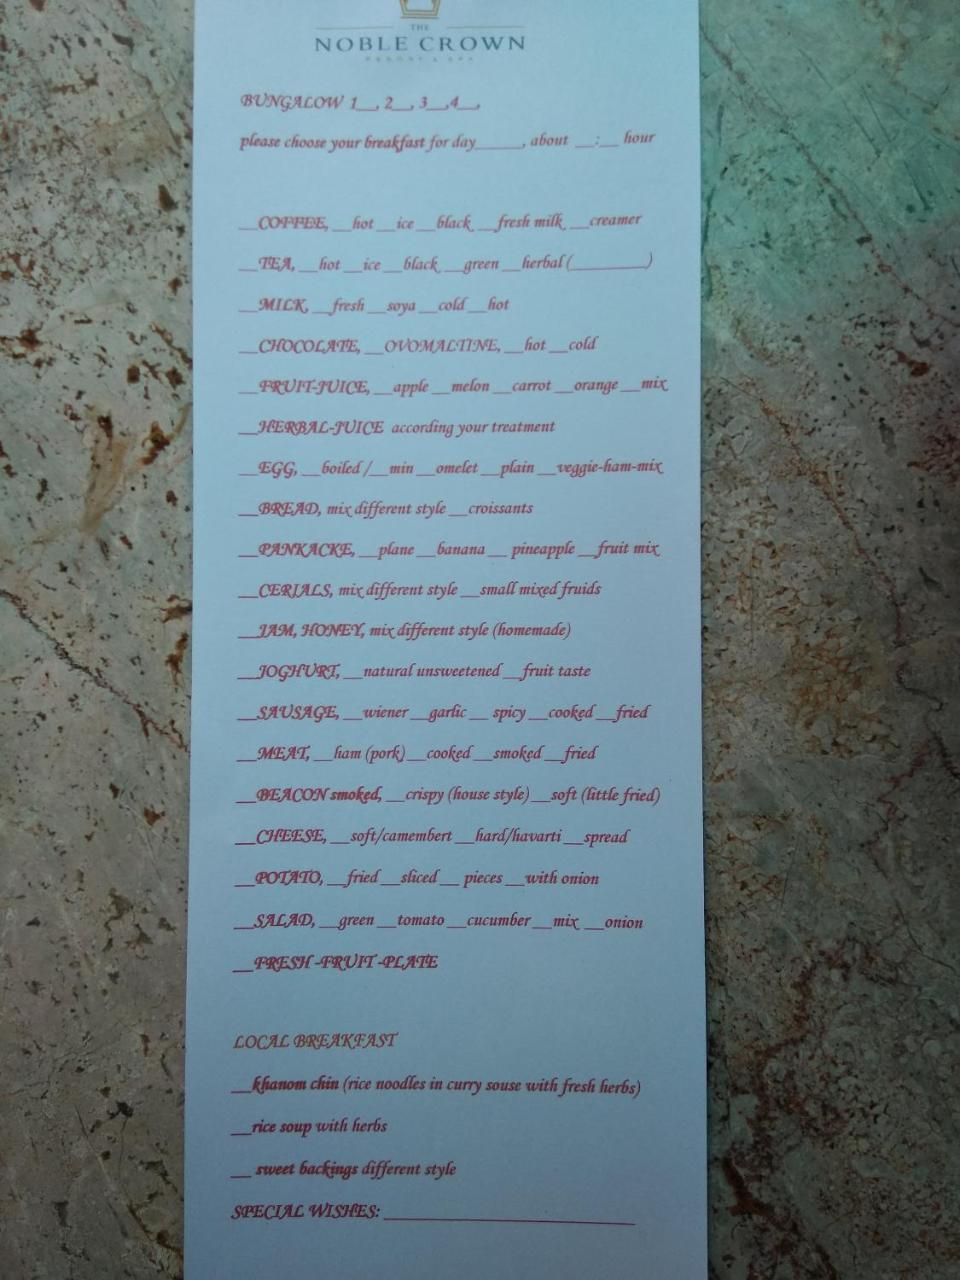 THE
NOBLE CROWN
RESORT & SPA
BUNGALOW 1__, 2__, 3__,4__,
please choose your breakfast for day_____, about __:__ hour
__COFFEE, __hot __ice __black __fresh milk __creamer
__TEA, __hot __ice __black __green __herbal (________)
__MILK, __fresh __soya __cold __hot
__CHOCOLATE, __OVOMALTINE, __hot __cold
__FRUIT-JUICE, __apple __melon __carrot __orange __mix
__HERBAL-JUICE according your treatment
__EGG, __boiled /__min __omelet __plain __veggie-ham-mix
__BREAD, mix different style __croissants
__PANKACKE, __plane __banana __ pineapple __fruit mix
__CERIALS, mix different style __small mixed fruids
__JAM, HONEY, mix different style (homemade)
__JOGHURT, __natural unsweetened __fruit taste
__SAUSAGE, __wiener __garlic __ spicy __cooked __fried
__MEAT, __ham (pork) __cooked __smoked __fried
__BEACON smoked, __crispy (house style) __soft (little fried)
__CHEESE, __soft/camembert __hard/havarti __spread
__POTATO, __fried __sliced __ pieces __with onion
__SALAD, __green __tomato __cucumber __mix __onion
__FRESH -FRUIT -PLATE
LOCAL BREAKFAST
__khanom chin (rice noodles in curry souse with fresh herbs)
__rice soup with herbs
__ sweet backings different style
SPECIAL WISHES: ______________________